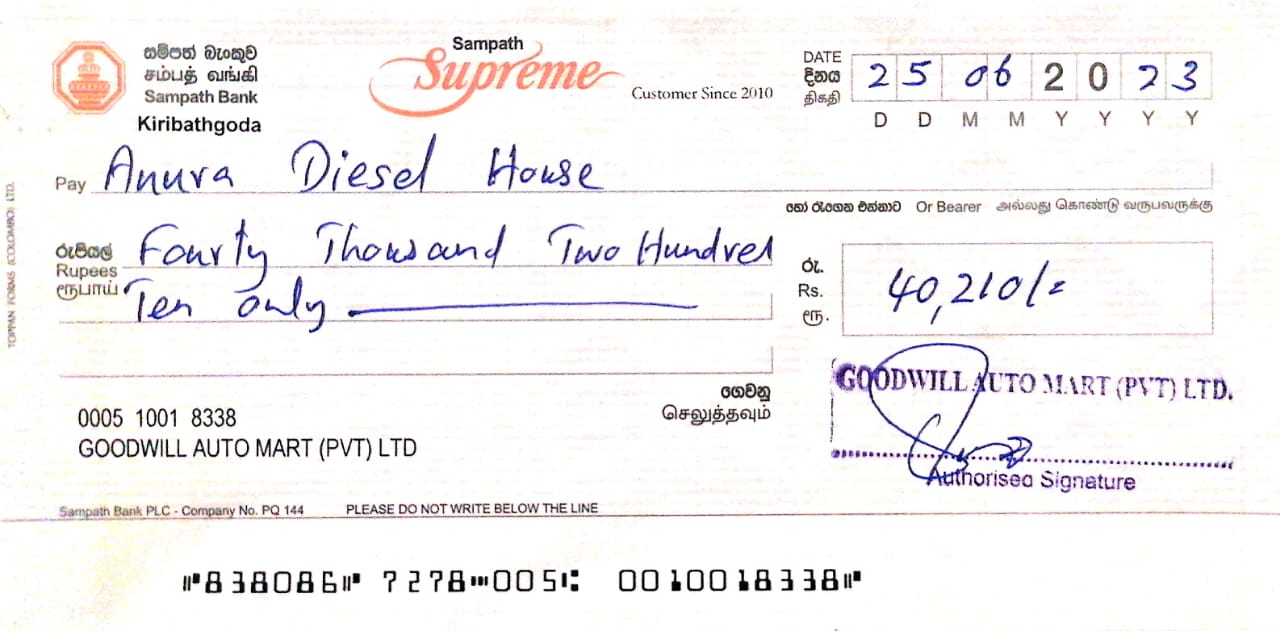 සම්පත් බැංකුව
சம்பத் வங்கி
Sampath Bank
Kiribathgoda
Sampath
Supreme
Customer Since 2010
DATE
දිනය
திகதி
2 5 0 6 2 0 2 3
D D M M Y Y Y Y
Pay Anura Diesel House
හෝ රැගෙන එන්නාට Or Bearer அல்லது கொண்டு வருபவருக்கு
රුපියල්
Rupees
ரூபாய்
Fourty Thousand Two Hundred
Ten only
රු.
Rs.
ரூ.
40,210/=
ගෙවනු
செலுத்தவும்
0005 1001 8338
GOODWILL AUTO MART (PVT) LTD
GOODWILL AUTO MART (PVT) LTD.
Authorised Signature
Sampath Bank PLC - Company No. PQ 144 PLEASE DO NOT WRITE BELOW THE LINE
TOPPAN FORMS (COLOMBO) LTD.
⑈838086⑈ 7278⑉005⑆ 0010018338⑈